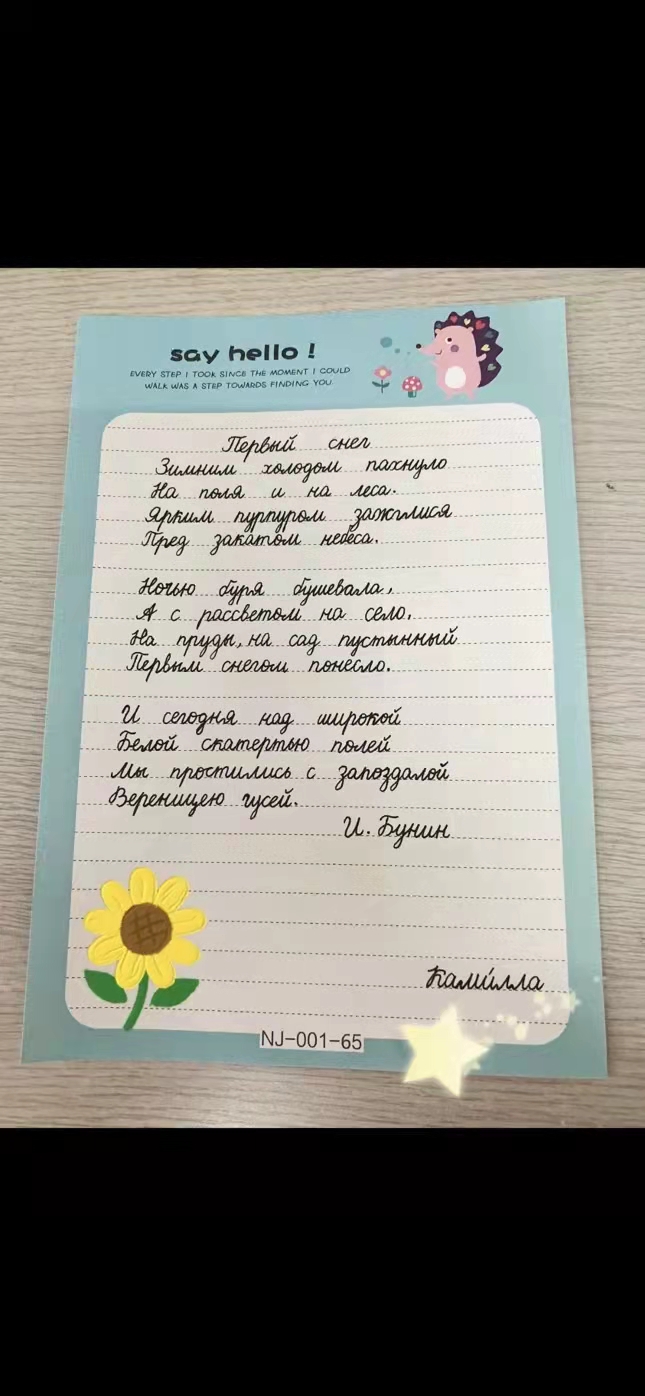 say hello !
EVERY STEP I TOOK SINCE THE MOMENT I COULD
WALK WAS A STEP TOWARDS FINDING YOU
Первый снег
Зимним холодом пахнуло
На поля и на леса.
Ярким пурпуром зажглися
Пред закатом небеса.
Ночью буря бушевала,
А с рассветом на село,
На пруды, на сад пустынный
Первым снегом понесло.
И сегодня над широкой
Белой скатертью полей
Мы простились с запоздалой
Вереницею гусей.
И. Бунин
Камилла
NJ-001-65